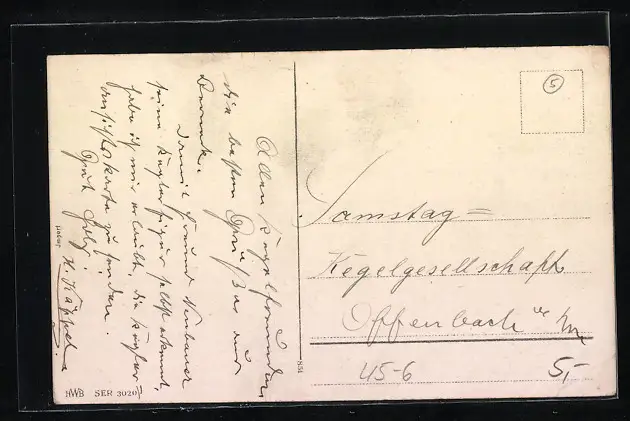 Allen Kegelfreunden
die besten Grüße aus
Damit Freund Neubauer
seine Keglerfigur selbst erkennt,
habe ich mir erlaubt, die Kegler-
ansichtskarte zu senden.
Gut Holz
Samstag=
Kegelgesellschaft
Offenbach a/M
45-6
5,-
5
HWB SER 3020